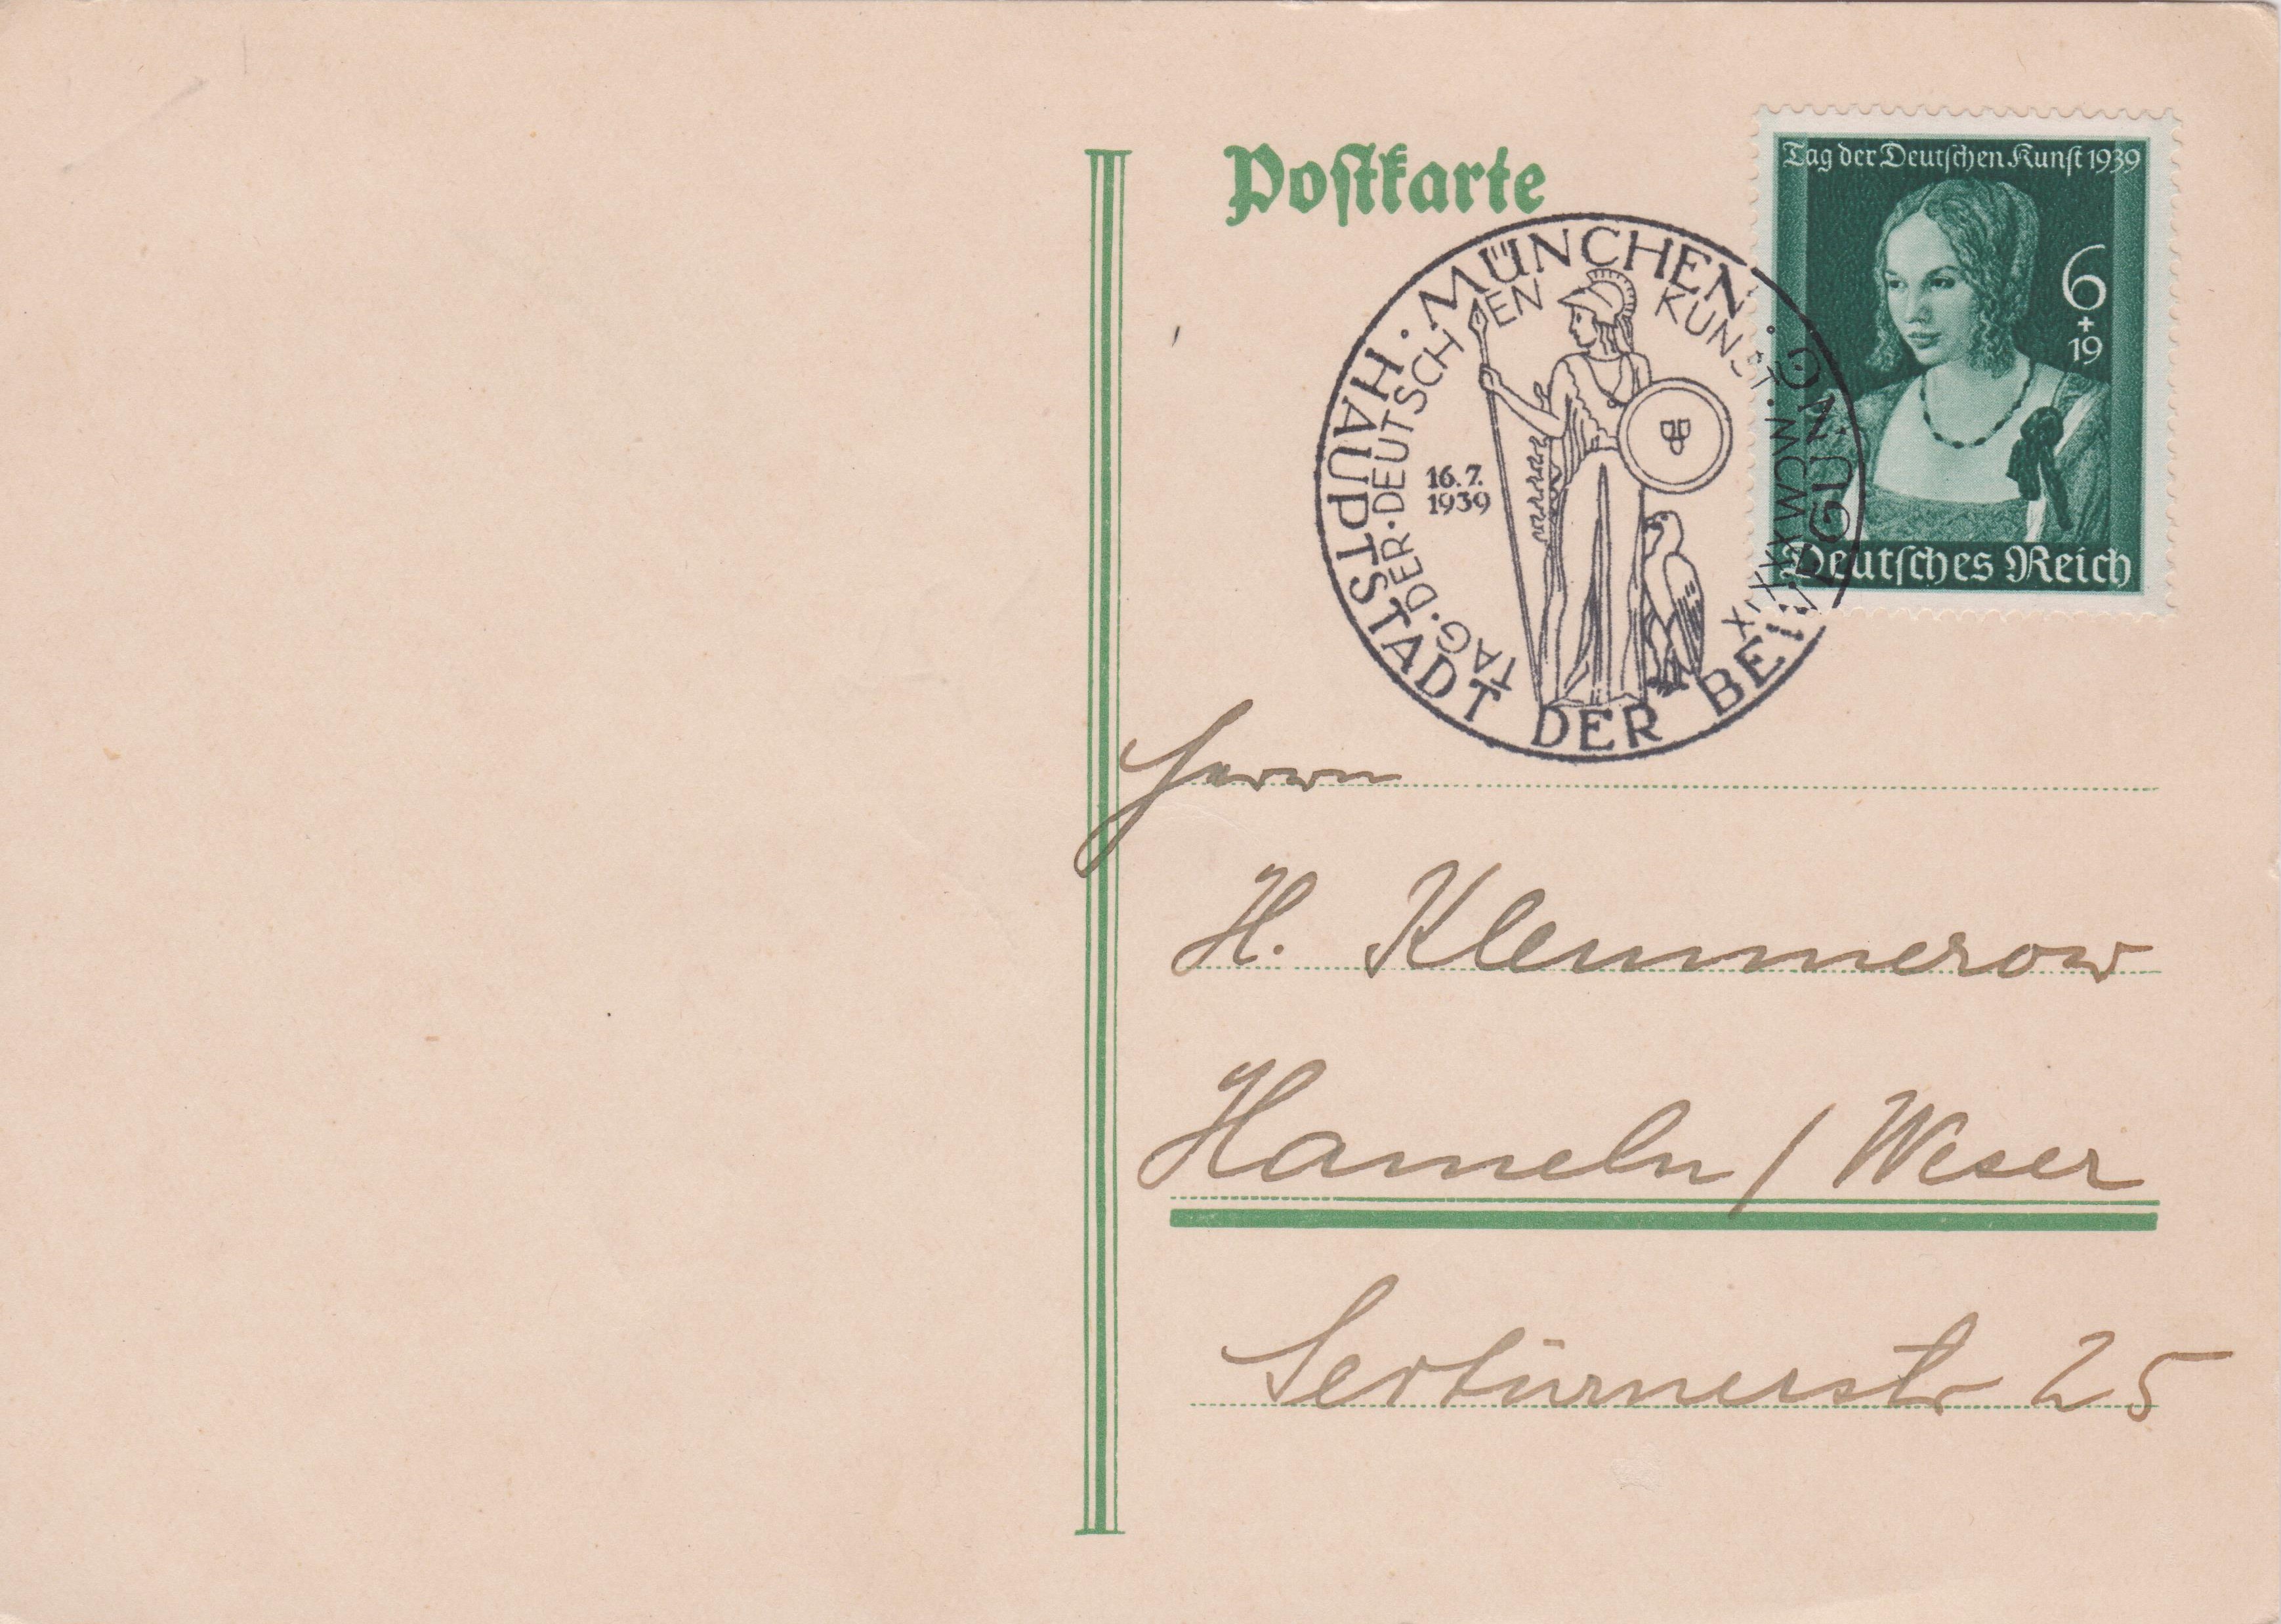 Postkarte
Tag der Deutschen Kunst 1939
6
+
19
Deutsches Reich
MÜNCHEN · HAUPTSTADT DER BEWEGUNG ·
TAG · DER · DEUTSCHEN KUNST · MCMXXXIX
16.7.
1939
Herrn
H. Klemmerow
Hameln / Weser
Sertürnerstr 25